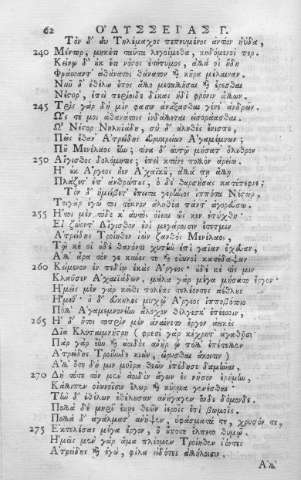 62 ὈΔΥΣΣΕΊΑΣ Γ.
Τὸν δ' αὖ Τηλέμαχος πεπνυμένος ἀντίον ηὔδα,
240 Μέντορ, μηκέτι ταῦτα λεγώμεθα, κηδόμενοί περ.
Κείνῳ δ' οὐκ ἔτι νόστος ἐτήτυμος, ἀλλά οἱ ἤδη
Φράσσαντ' ἀθάνατοι θάνατον καὶ κῆρα μέλαιναν.
Νῦν δ' ἐθέλω ἔπος ἄλλο μεταλλῆσαι καὶ ἐρέσθαι
Νέστορ', ἐπεὶ περίοιδε δίκας ἠδὲ φρόνιν ἄλλων.
245 Τρὶς γὰρ δή μιν φασιν ἀνάξασθαι γένε' ἀνδρῶν,
Ὥς τέ μοι ἀθάνατος ἰνδάλλεται εἰσοράασθαι.
Ὦ Νέστορ Νηληϊάδη, σὺ δ' ἀληθὲς ἔνισπε,
Πῶς ἔθαν' Ἀτρείδης εὐρυκρείων Ἀγαμέμνων;
Ποῦ Μενέλαος ἔην; τίνα δ' αὐτῷ μήσατ' ὄλεθρον
250 Αἴγισθος δολόμητις; ἐπεὶ κτάνε πολλὸν ἀρείω.
Ἦ οὐκ Ἄργεος ἦεν Ἀχαιϊκοῦ, ἀλλά πῃ ἄλλῃ
Πλάζετ' ἐπ' ἀνθρώπους, ὁ δὲ θαρσήσας κατέπεφνε;
Τὸν δ' ἠμείβετ' ἔπειτα γερήνιος ἱππότα Νέστωρ,
Τοιγὰρ ἐγώ τοι τέκνον ἀληθέα πάντ' ἀγορεύσω.
255 Ἤτοι μὲν τόδε κ' αὐτὸς ὀΐεαι ὥς κεν ἐτύχθη.
Εἰ ζώοντ' Αἴγισθον ἐνὶ μεγάροισιν ἔτετμεν
Ἀτρείδης Τροίηθεν ἰὼν ξανθὸς Μενέλαος,
Τῷ κέ οἱ οὐδὲ θανόντι χυτὴν ἐπὶ γαῖαν ἔχευαν,
Ἀλλ' ἄρα τόν γε κύνες τε καὶ οἰωνοὶ κατέδαψαν
260 Κείμενον ἐν πεδίῳ ἑκὰς Ἄργεος· οὐδέ κέ τίς μιν
Κλαῦσεν Ἀχαιϊάδων, μάλα γὰρ μέγα μήσατο ἔργον.
Ἡμεῖς μὲν γὰρ κεῖθι πολέας τελέοντες ἀέθλους
Ἥμεθ'· ὁ δ' εὔκηλος μυχῷ Ἄργεος ἱπποβότοιο
Πόλλ' Ἀγαμεμνονέην ἄλοχον θέλγεσκεν ἔπεσσιν,
265 Ἡ δ' ἤτοι τοπρὶν μὲν ἀναίνετο ἔργον ἀεικὲς
Δῖα Κλυταιμνήστρη (φρεσὶ γὰρ κέχρητ' ἀγαθῇσι
Πὰρ γὰρ ἔην καὶ ἀοιδὸς ἀνὴρ ᾧ πόλλ' ἐπέτελλεν
Ἀτρείδης Τροίηνδε κιὼν, εἴρυσθαι ἄκοιτιν)
Ἀλλ' ὅτε δή μιν μοῖρα θεῶν ἐπέδησε δαμῆναι,
270 Δὴ τότε τὸν μὲν ἀοιδὸν ἄγων ἐς νῆσον ἐρήμην,
Κάλλιπεν οἰωνοῖσιν ἕλωρ καὶ κύρμα γενέσθαι·
Τὴν δ' ἐθέλων ἐθέλουσαν ἀνήγαγεν ὅνδε δόμονδε.
Πολλὰ δὲ μηρί' ἔκηε θεῶν ἱεροῖς ἐπὶ βωμοῖς,
Πολλὰ δ' ἀγάλματ' ἀνῆψεν, ὑφάσματά τε, χρυσόν τε,
275 Ἐκτελέσας μέγα ἔργον, ὃ οὔποτε ἔλπετο θυμῷ.
Ἡμεῖς μὲν γὰρ ἅμα πλέομεν Τροίηθεν ἰόντες
Ἀτρείδης καὶ ἐγὼ, φίλα εἰδότες ἀλλήλοισιν.
Ἀλλ'